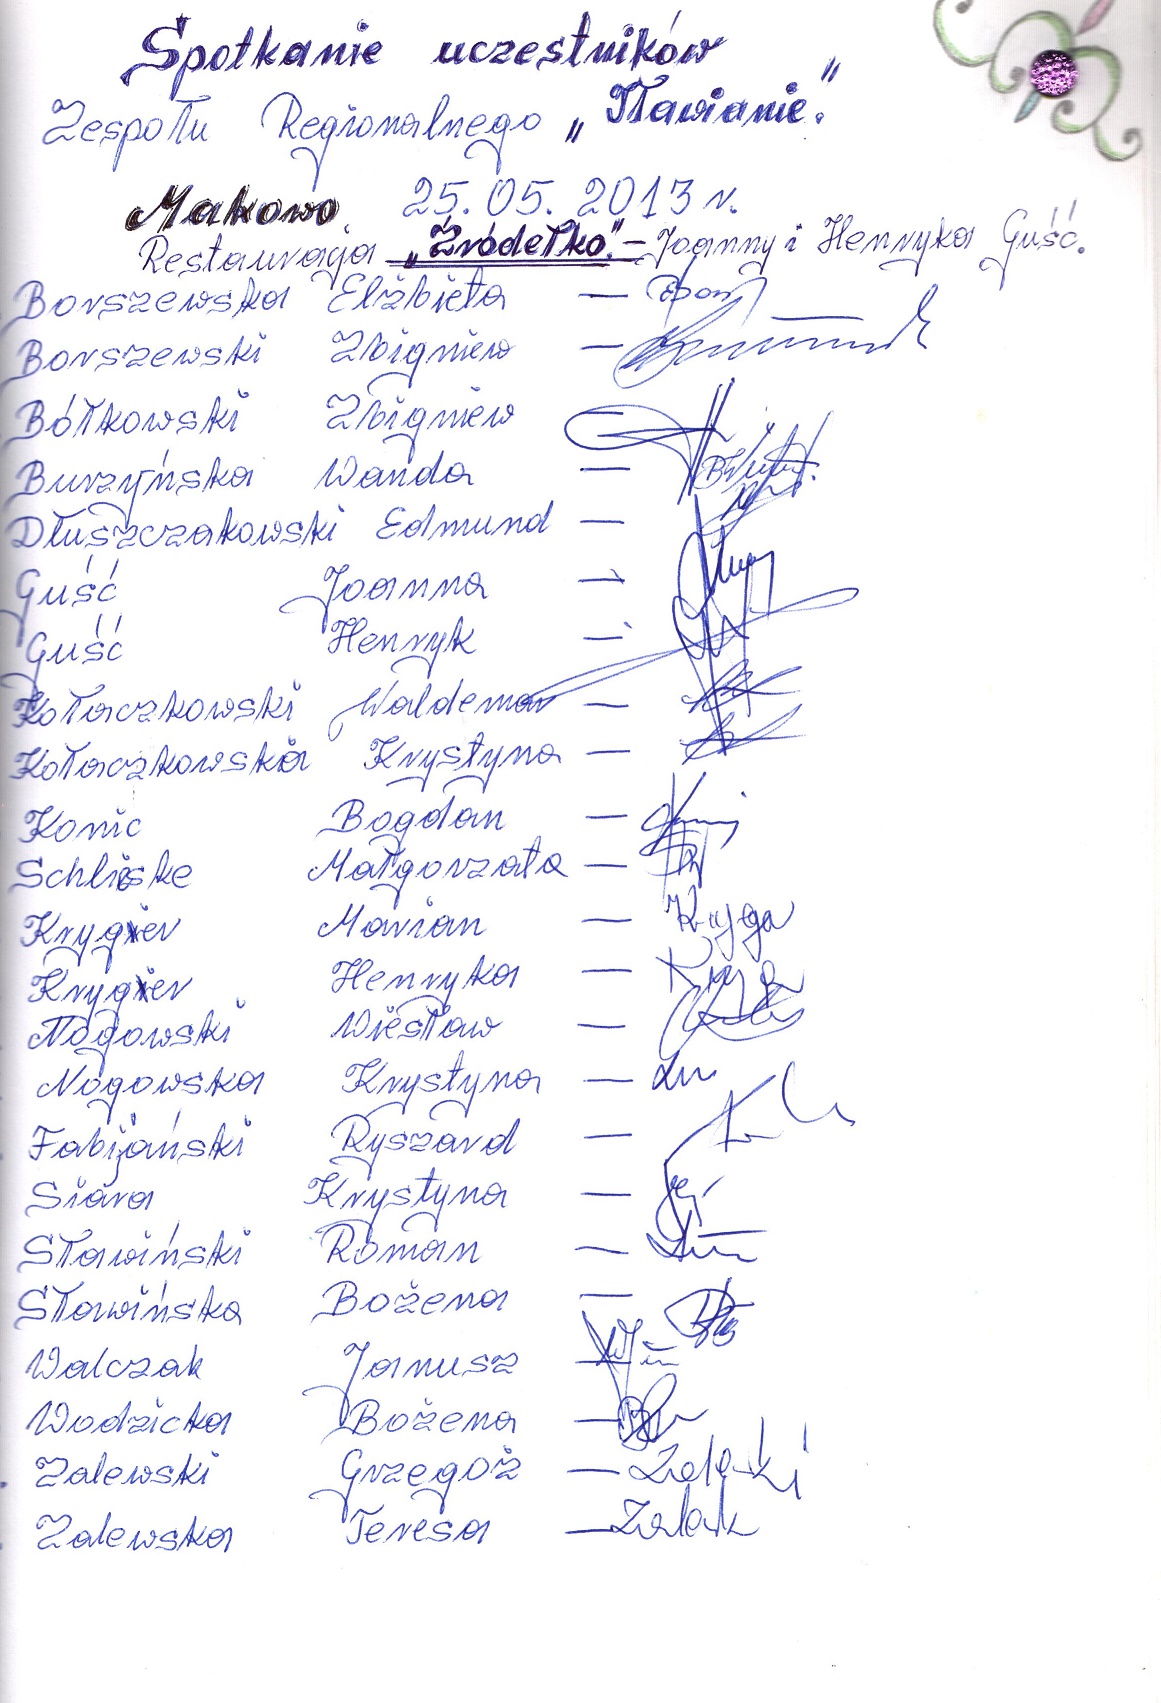 Spotkanie uczestników
Zespołu Regionalnego „Iławianie."
Makowo 25.05.2013 r.
Restauracja „Źródełko." – Joanny i Henryka Guść.
Borszewska Elżbieta –
Borszewski Zbigniew –
Bółkowski Zbigniew
Burzyńska Wanda –
Dłuszczakowski Edmund –
Guść Joanna –
Guść Henryk –
Kołaczkowski Waldemar –
Kołaczkowska Krystyna –
Konic Bogdan –
Schliske Małgorzata –
Krygier Marian – Kryga
Krygier Henryka –
Nogowski Wiesław –
Nogowska Krystyna –
Fabijański Ryszard –
Siara Krystyna –
Sławiński Roman –
Sławińska Bożena –
Walczak Janusz –
Wodzicka Bożena –
Zalewski Grzegoż – Zalewski
Zalewska Teresa –